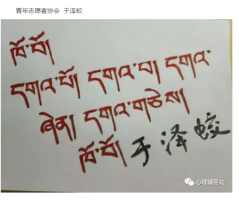 青年志愿者协会 于泽蛟
ཁོ་བོ།
དགའ་བོ། དགའ་བ། དགའ་
ཞེན། དགའ་གཅེས།
ཁོ་བོ། 于泽蛟
心理辅导站